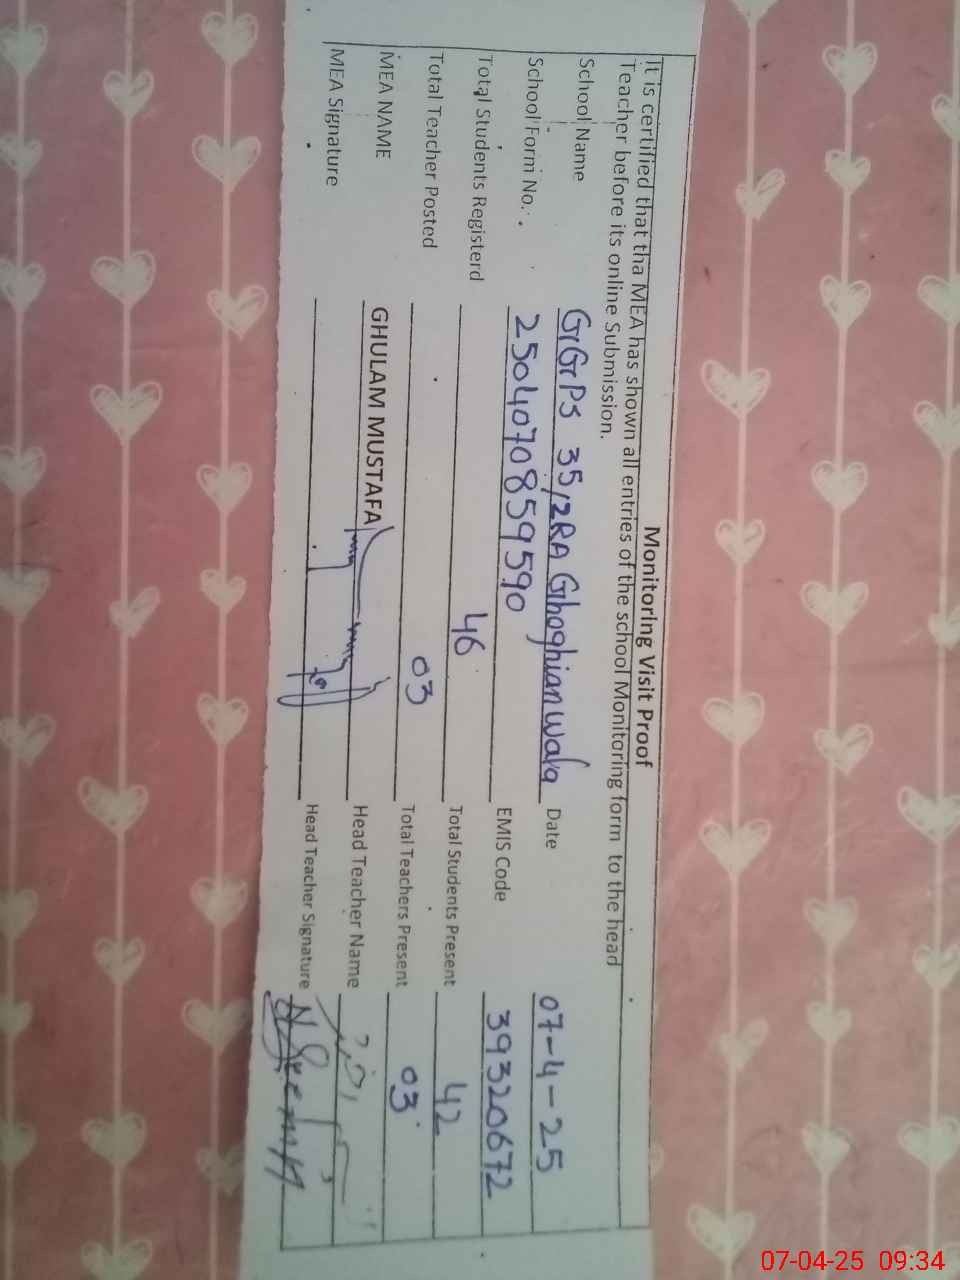 Monitoring Visit Proof
It is certified that tha MEA has shown all entries of the school Monitoring form to the head
Teacher before its online Submission.
School Name GGPS 35/2RA Ghoghianwala Date 07-4-25
School Form No. 2504070859590 EMIS Code 39320672
Total Students Registerd 46 Total Students Present 42
Total Teacher Posted 03 Total Teachers Present 03
MEA NAME GHULAM MUSTAFA Head Teacher Name
MEA Signature Head Teacher Signature
07-04-25 09:34